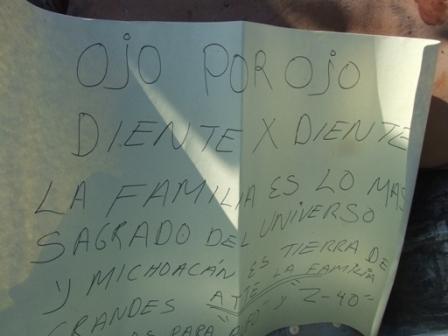 OJO POR OJO
DIENTE X DIENTE
LA FAMILIA ES LO MAS
SAGRADO DEL UNIVERSO
Y MICHOACÁN ES TIERRA DE
GRANDES ATTE LA FAMILIA
PARA Y "Z-40"